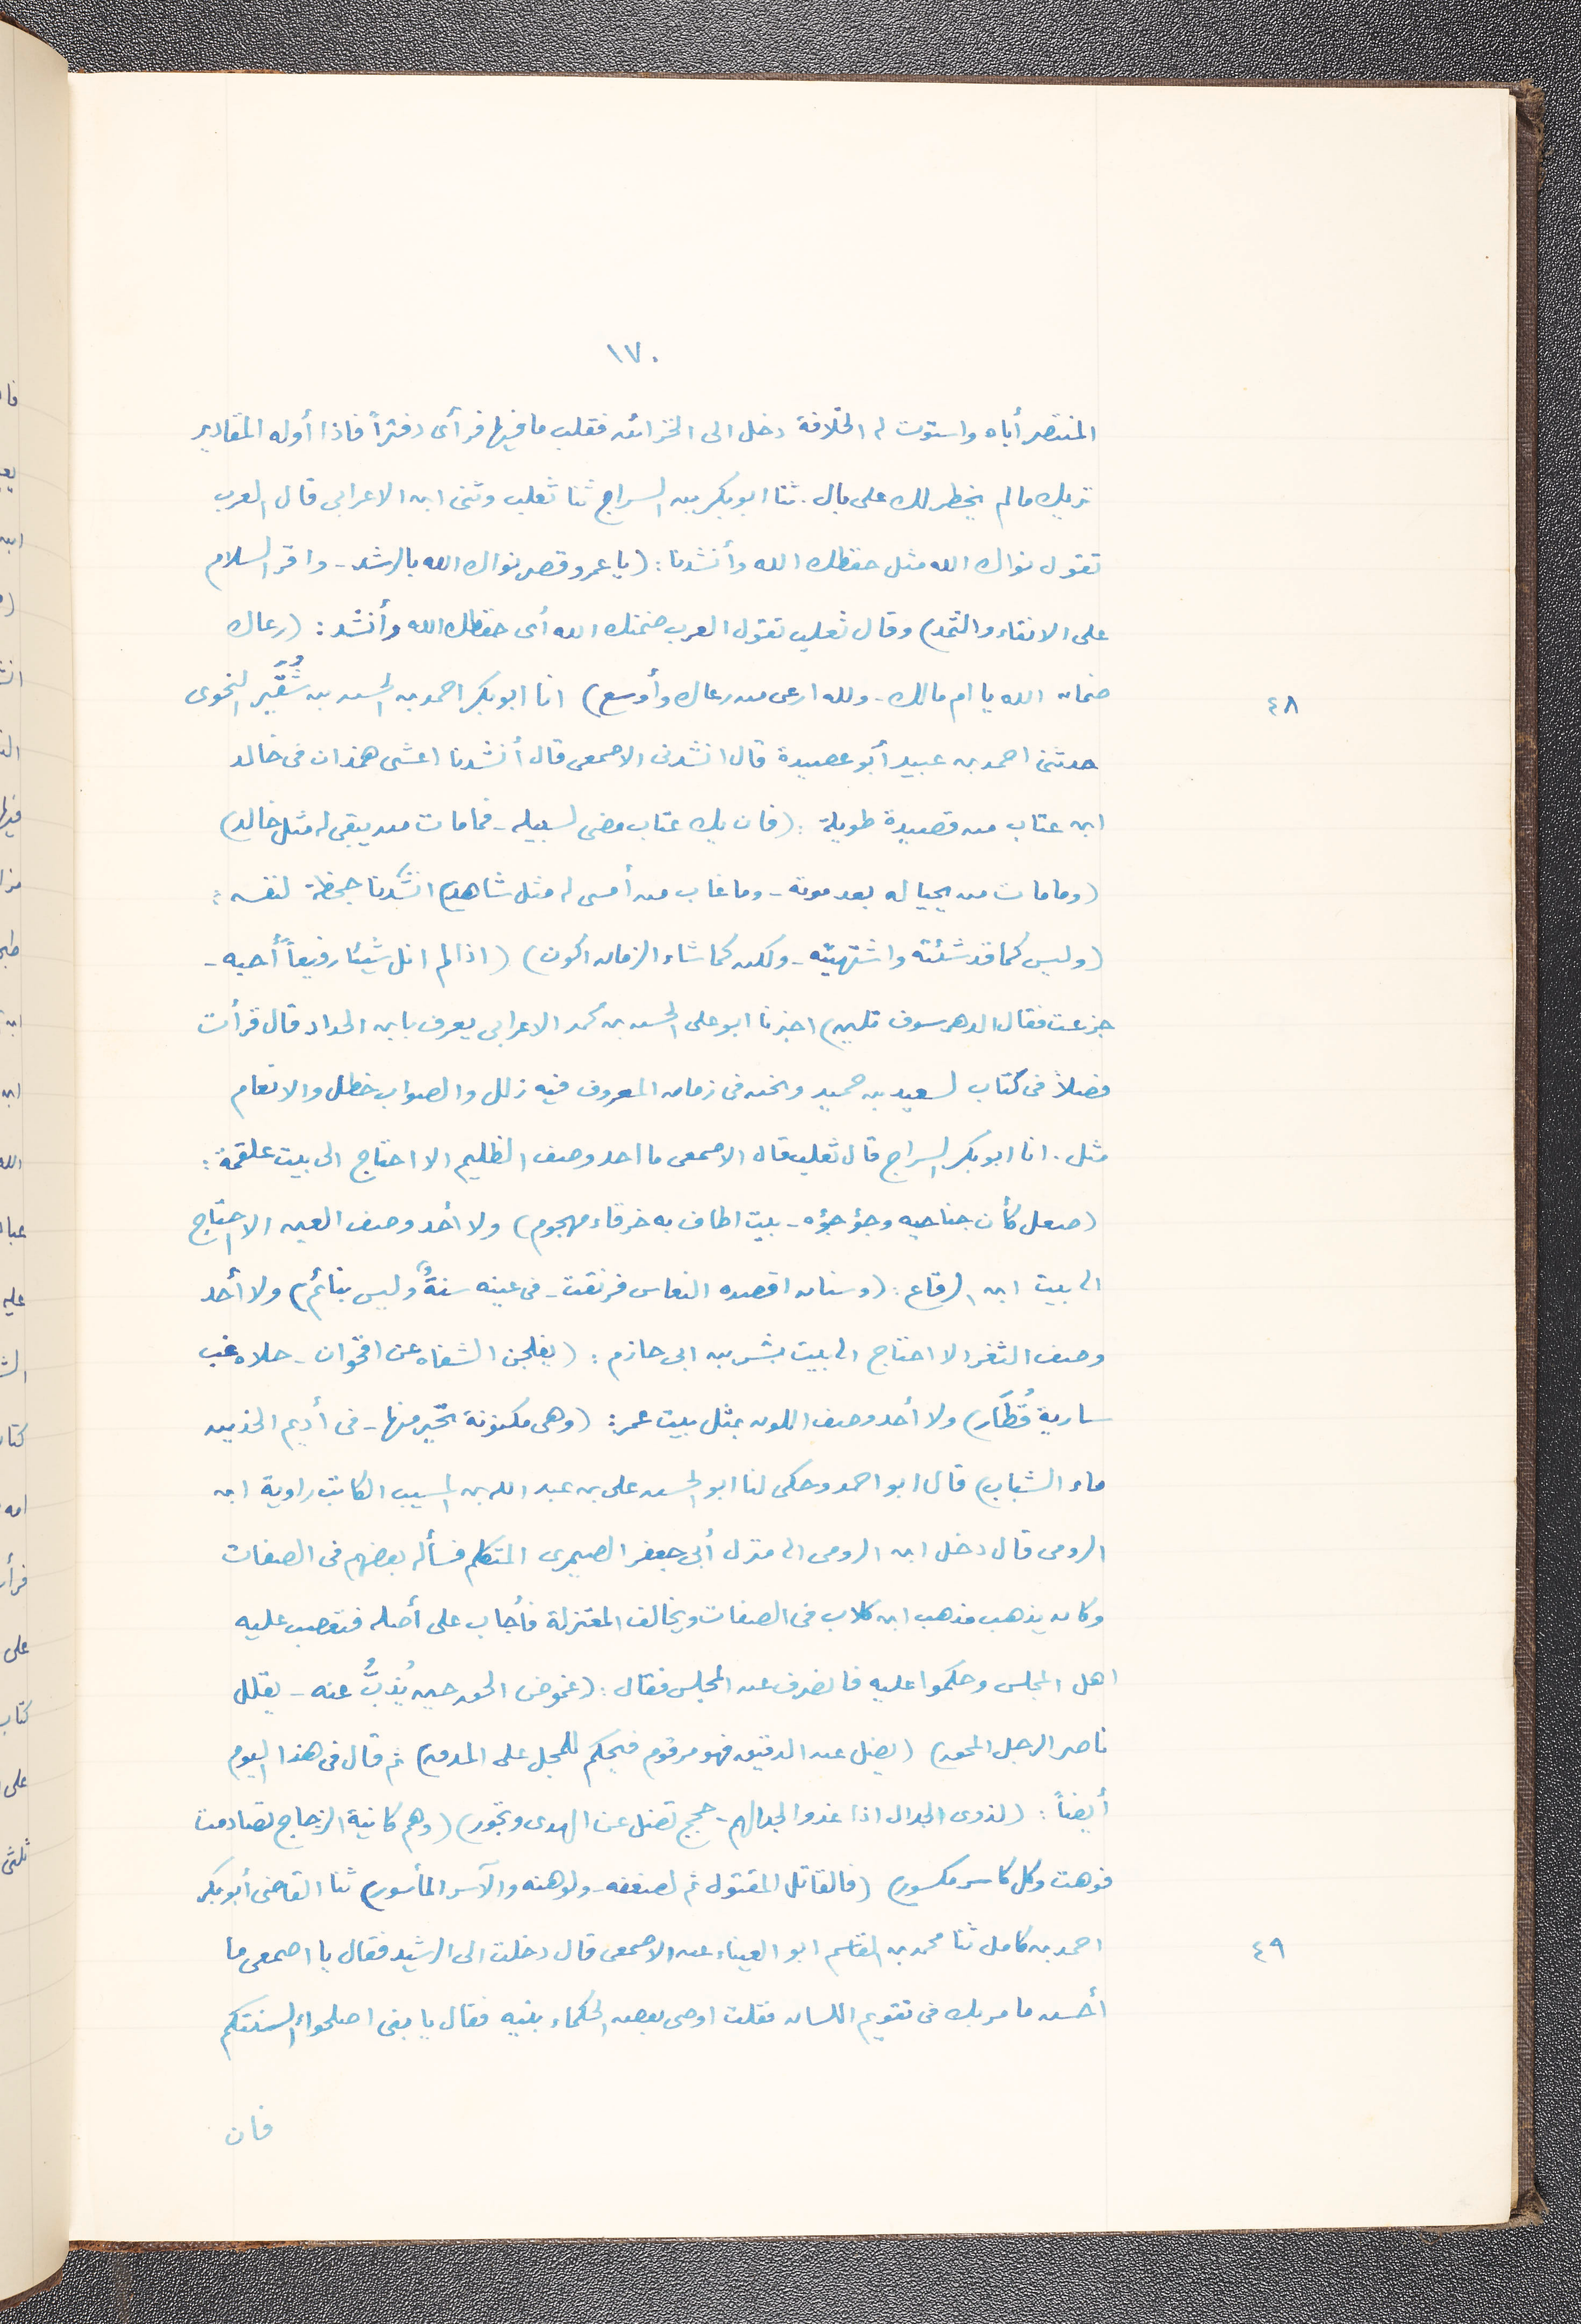 ١٧٠
المنتصر أباه واستوت له الخلافة دخل الى الخزائن فقلب ما فيها فرأى دفتراً فاذا أوله المقادير
تريك ما لم يخطر لك على بال . ثنا ابو بكر بن السراج ثنا ثعلب وثنى ابن الاعرابى قال العرب
تقول نواك الله مثل حفظك الله وأنشدنا : (يا عمرو قصر نواك الله بالرشد - واقر السلام
على الانقاء والثمد) وقال ثعلب تقول العرب ضمنك الله أى حفظك الله وأنشد : (رعاك
ضمان الله يا ام مالك - ولله ارعى من رعاك وأوسع) انا ابو بكر احمد بن الحسن بن شُقَير النحوى
٤٨
حدثنى احمد بن عبيد أبو عصيدة قال انشدنى الاصمعى قال أنشدنا اعشى همذان فى خالد
ابن عتاب من قصيدة طويلة : (فان يك عتاب مضى لسبيله - فما مات من يبقى له مثل خالد)
(وما مات من يحيا له بعد موته - وما غاب من أمسى له مثل شاهد) انشدنا جحظة لنفسه :
(وليس كما قد شئته واشتهيته - ولكن كما شاء الزمان اكون) (اذا لم انل شيئا رفيعاً أحبه -
جزعت فقال الدهر سوف تلين) اخبرنا ابو على الحسن بن محمد الاعرابى يعرف بابن الحداد قال قرأت
فصلاً فى كتاب لسعيد بن حميد ونحن فى زمان المعروف فيه زلل والصواب خطل والانعام
مثل . انا ابو بكر السراج قال ثعلب قال الاصمعى ما احد وصف الظليم الا احتاج الى بيت علقمة :
(صعل كأن جناحيه وجؤجؤه - بيت اطاف به خرقاء مهجوم) ولا أحد وصف العين الا احتاج
الى بيت ابن الرقاع : (وسنان اقصده النعاس فرنقت - فى عينه سنةٌ وليس بنائم) ولا أحد
وصف الثغر الا احتاج الى بيت بشر بن ابى حازم : (يفلجن الشفاه عن اقحوان - حلاه غب
سارية قُطَار) ولا أحد وصف اللون بمثل بيت عمر : (وهى مكنونة تحير منها - فى أديم الخدين
ماء الشباب) قال ابو احمد وحكى لنا ابو الحسن على بن عبد الله بن المسيب الكاتب راوية ابن
الرومى قال دخل ابن الرومى الى منزل أبى جعفر الصيمرى المتكلم فسأله بعضهم فى الصفات
وكان يذهب مذهب ابن كلاب فى الصفات ويخالف المعتزلة فأجاب على أصله فتعصب عليه
اهل المجلس وحكموا عليه فانصرف عن المجلس فقال : (غموض الحق حين يُذبُّ عنه - يقلل
ناصر الرجل المحق) (يضل عن الدقيق فهو مرقوم فيحكم للمجل على المدق) ثم قال فى هذا اليوم
أيضاً : (لذوى الجدال اذا غدوا لجدالهم - حجج تضل عن الهدى وتجور) (وهم كانية الزجاج تصادمت
فوهت وكل كاسر مكسور) (فالقاتل المقتول ثم لضعفه - ولوهنه والآسر المأسور) ثنا القاضى أبو بكر
احمد بن كامل ثنا محمد بن القاسم ابو العيناء عن الاصمعى قال دخلت الى الرشيد فقال يا اصمعى ما
٤٩
أحسن ما مر بك فى تقويم اللسان فقلت اوصى بعض الحكماء بنيه فقال يا بنى اصلحوا السنتكم
فان